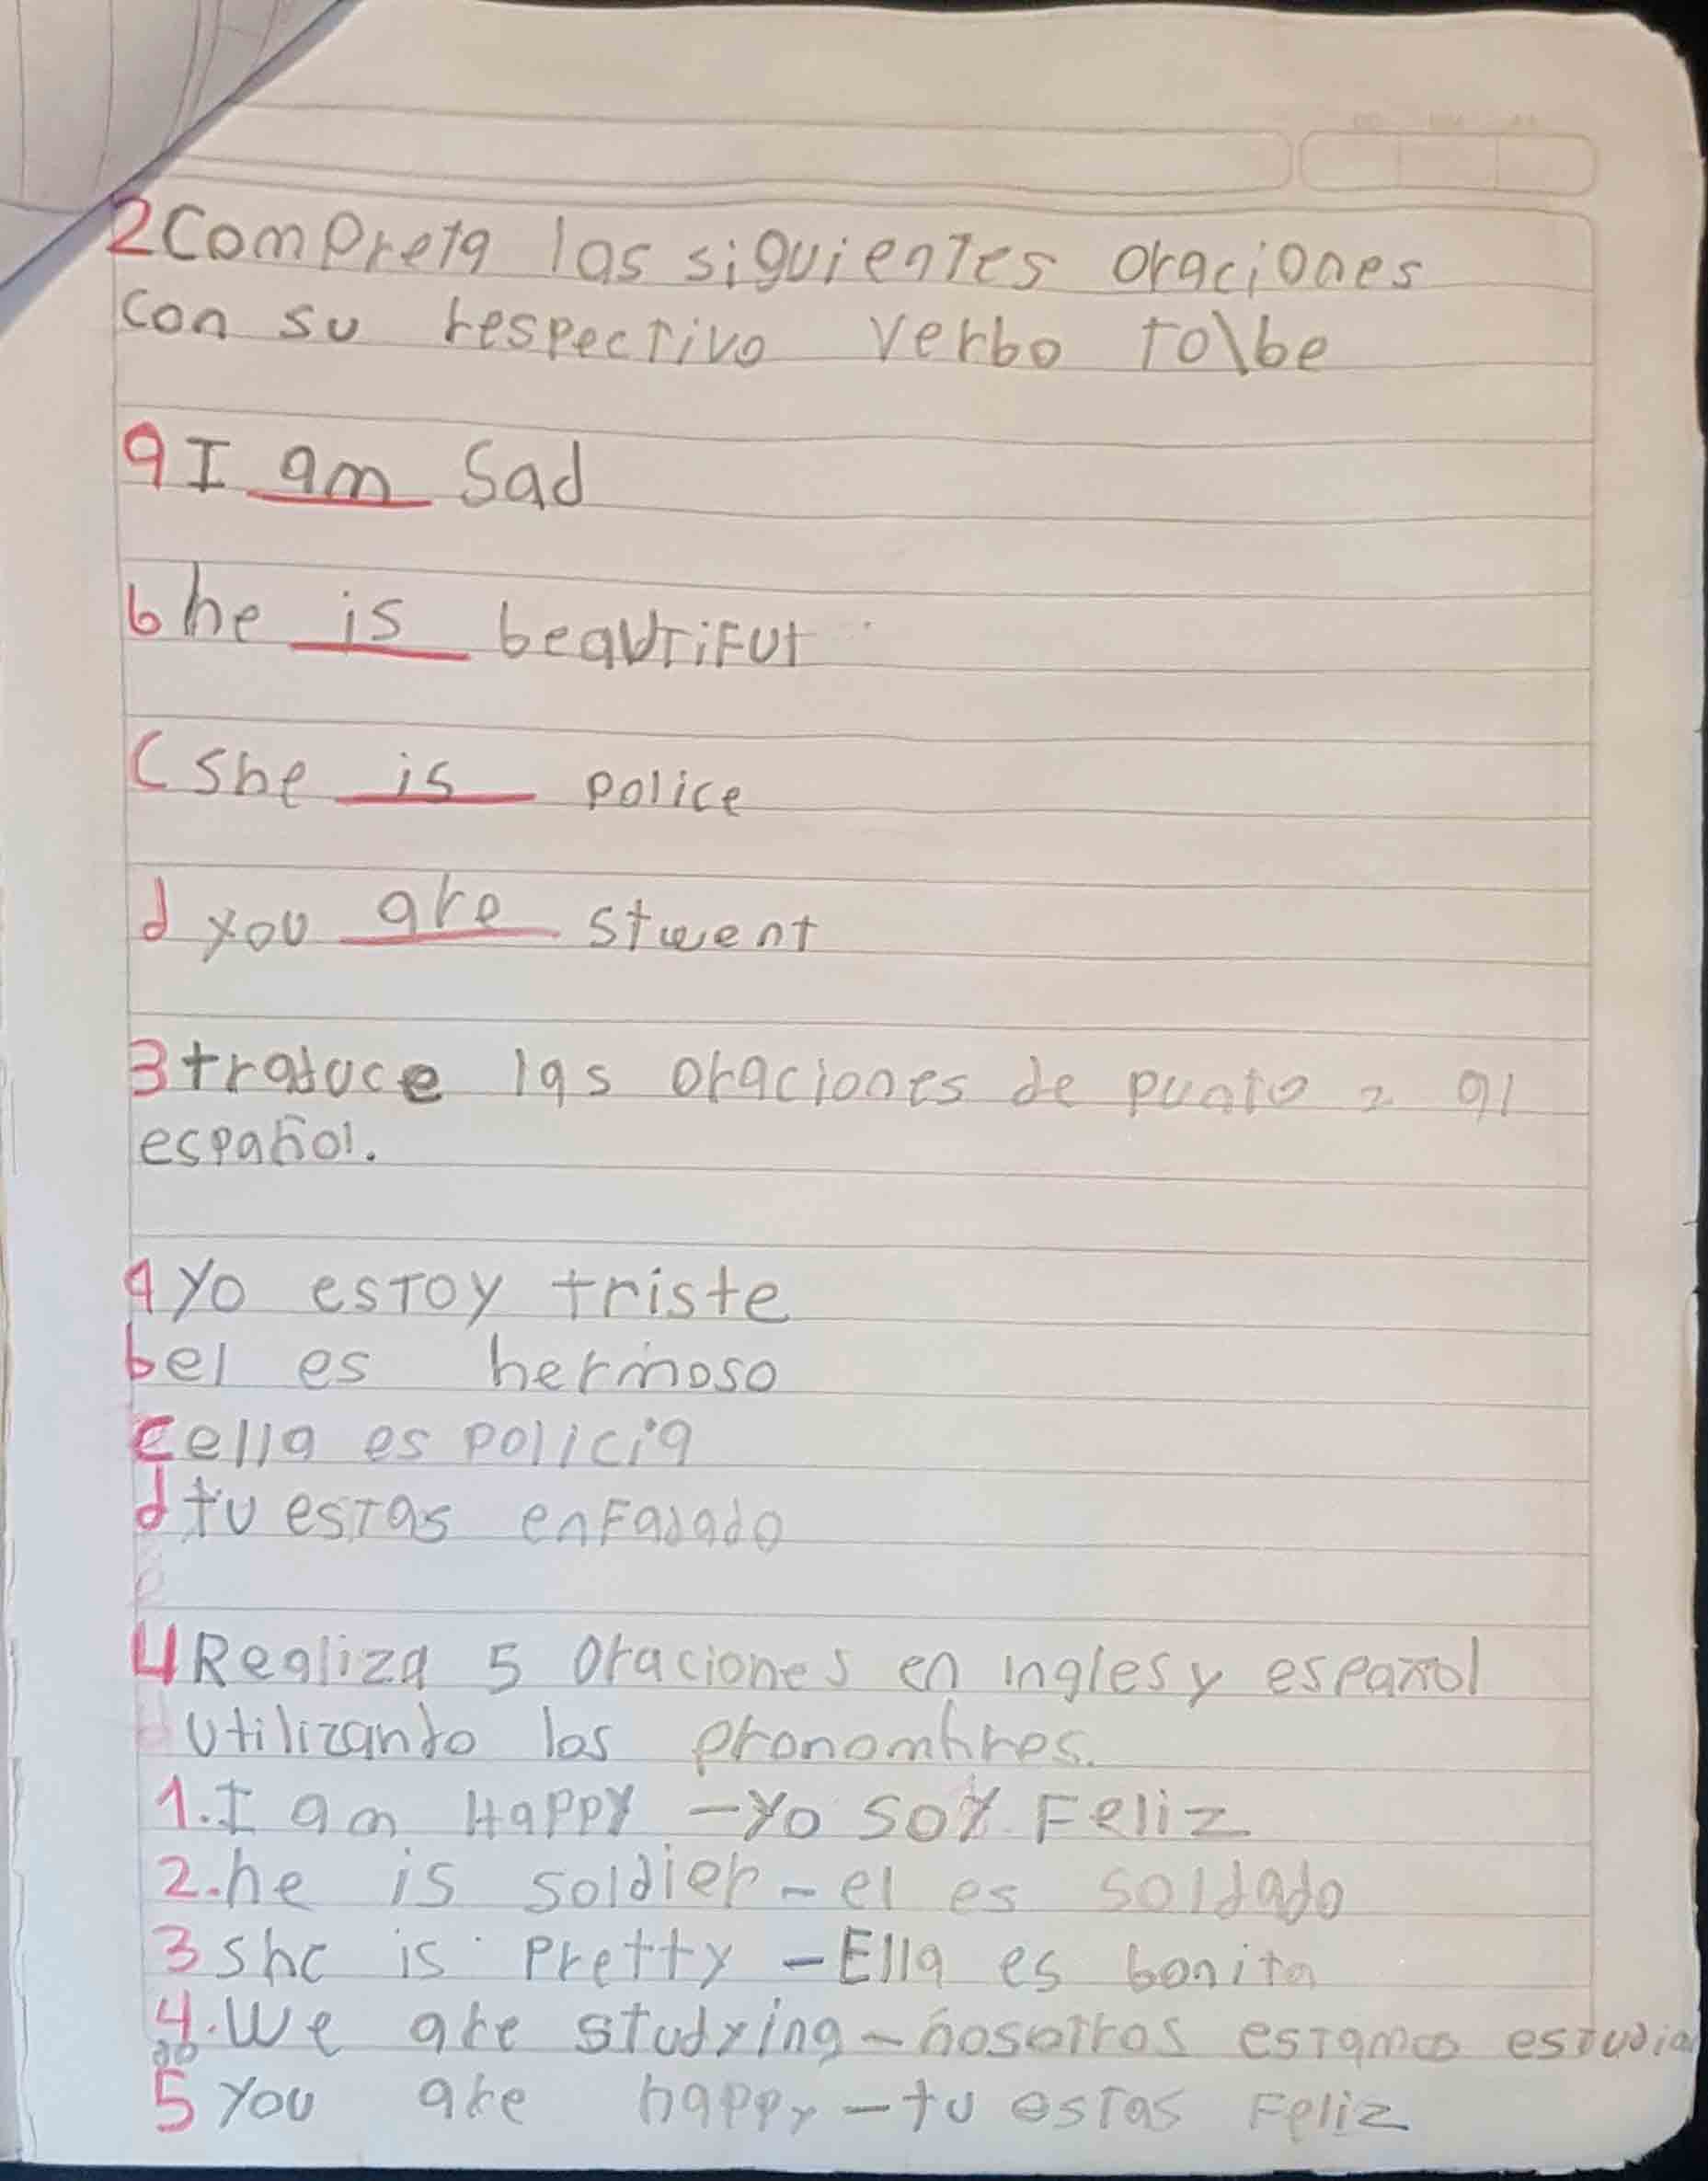 2 Compreta las siguientes oraciones
con su respectivo verbo to\be
a I am Sad
b he is beautiful
c she is police
d you are stuent
3 traduce las oraciones de punto 2 al
español.
a Yo estoy triste
b el es hermoso
c ella es policia
d tu estas enfadado
4 Realiza 5 oraciones en ingles y español
utilizando los pronombres.
1. I am Happy - Yo soy Feliz
2. he is soldier - el es soldado
3 she is Pretty - Ella es bonita
4. We are studying - nosotros estamos estudia
5 You are happy - tu estas Feliz